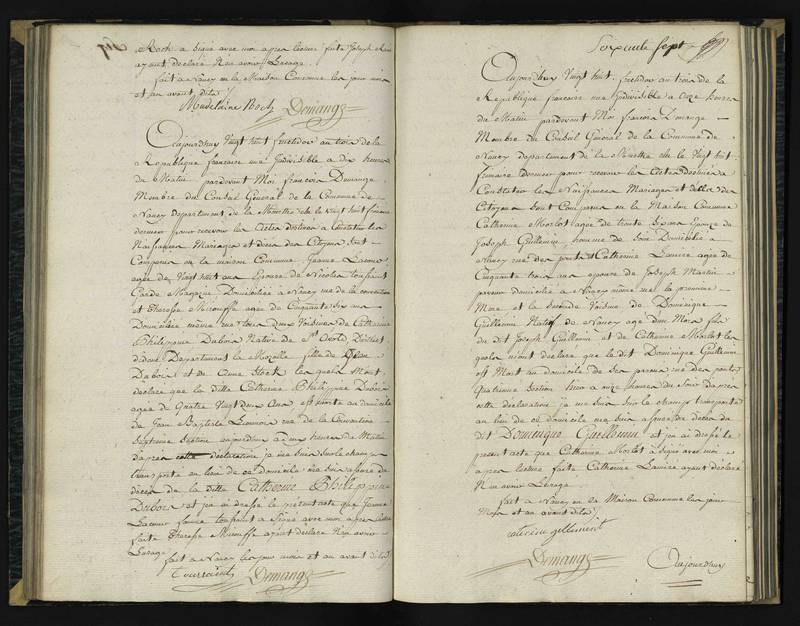 Roch a signé avec moi apres lecture faite Joseph
ayant declaré N'en avoir L'usage
fait a Nancy en la Maison Commune les jour mois
et an avant dits
Madelaine Roch Demange
Aujourdhuy Vingt huit fructidor au trois de la
Republique francaise une Indivisible a dix heures
du Matin pardevant Moi francois Demange
Membre du Conseil General de la Commune de
Nancy Departement de la Meurthe elu le vingt huit frimaire
dernier pour recevoir les Actes destinés a Constater les
Naissances Mariages et deces des Citoyens sont
Comparus en la maison Commune Jeanne Lacour
agée de Vingt huit ans Epouse de Nicolas toussaint
Garde Magazin Domiciliée a Nancy rue de la convention
et Therese Micouffe agée de Cinquante six ans
Domiciliée même rue toutes deux Voisines de Catherine
Philippine Dubois Native de St Avold District
Departement la Mozelle fille de
Dubois et de Anne Stock les quels Mont
declaré que la ditte Catherine Philippine Dubois
agée de Quatre Vingt deux Ans est morte au domicile
de Jean Baptiste Lionnois rue de la Convention
Septieme Section aujourdhuy a une heures du Matin
Dapres cette declaration je me suis sur le champ
transporté au lieu de ce domicile me suis assuré du
déces de la ditte Catherine Philippine
Dubois et jen ai dressé le présent acte que Jeanne
Lacour femme toussaint a Signé avec moi apres lecture
faite Therese Micouffe ayant declaré N'en avoir
L'usage
fait a Nancy les jour mois et an avant dits
Toussaint Demange
Soixante Sept
Aujourdhuy Vingt huit fructidor au trois de la
Republique francaise une Indivisible a onze heures
du Matin pardevant Moi francois Demange
Membre du Conseil General de la Commune de
Nancy departement de la Meurthe elu le Vingt huit
frimaire dernier pour recevoir les Actes destinés a
Constater les Naissances Mariages et deces des
Citoyens sont Comparus en la Maison Commune
Catherine Morlot agée de trente six ans Epouse de
Joseph Guillemin homme de Loix Domicilié a
Nancy rue des ponts et Catherine Lamire agée de
Cinquante trois ans epouse de Joseph Martin
domicilié a Nancy même rue la premiere
Mere et la seconde Voisine de Dominique
Guillemin Natif de Nancy agé d'un Mois fils
du dit Joseph Guillemin et de Catherine Morlot les
quels m'ont declaré que le dit Dominique Guillemin
est Mort au domicile de ses pere rue des ponts
Quatrieme Section hier a onze heures du Soir Dapres
cette declaration je me suis sur le champ transporté
au lieu de ce domicile me suis assuré du déces du
dit Dominique Guillemin et jen ai dressé le
present acte que Catherine Morlot a signé avec moi
apres lecture faite Catherine Lamire ayant déclaré
N'en avoir L'usage
fait a Nancy en la Maison Commune les jour
Mois et an avant dits
caterine gellement
Demange
Aujourdhuy